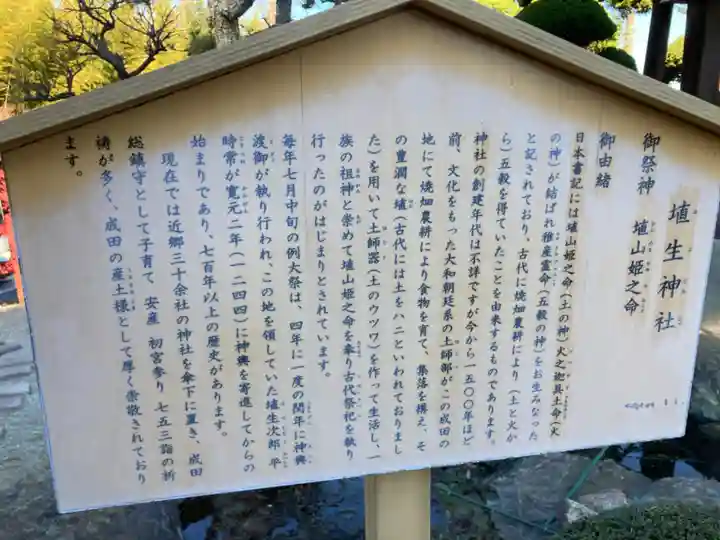 埴生神社
御祭神　埴山姫之命
御由緒
日本書記には埴山姫之命（土の神）火之能具土命（火
の神）が結ばれ雅産霊命（五穀の神）をお生みなった
と記されており、古代に焼畑農耕により（土と火か
ら）五穀を得ていたことを由来するものであります。
神社の創建年代は不詳ですが今から一五〇〇年ほど
前、文化をもった大和朝廷系の土師部がこの成田の
地にて焼畑農耕により食物を育て、集落を構え、そ
の豊潤な埴（古代には土をハニといわれておりまし
た）を用いて土師器（土のウツワ）を作って生活し、一
族の祖神と崇めて埴山姫之命を奉り古代祭祀を執り
行ったのがはじまりとされています。
毎年七月中旬の例大祭は、四年に一度の閏年に神輿
渡御が執り行われ、この地を領していた埴生次郎平
時常が寛元二年（一二四四）に神輿を寄進してからの
始まりであり、七百年以上の歴史があります。
現在では近郷三十余社の神社を傘下に置き、成田
総鎮守として子育て　安産　初宮参り　七五三詣の祈
祷が多く、成田の産土様として厚く崇敬されており
ます。